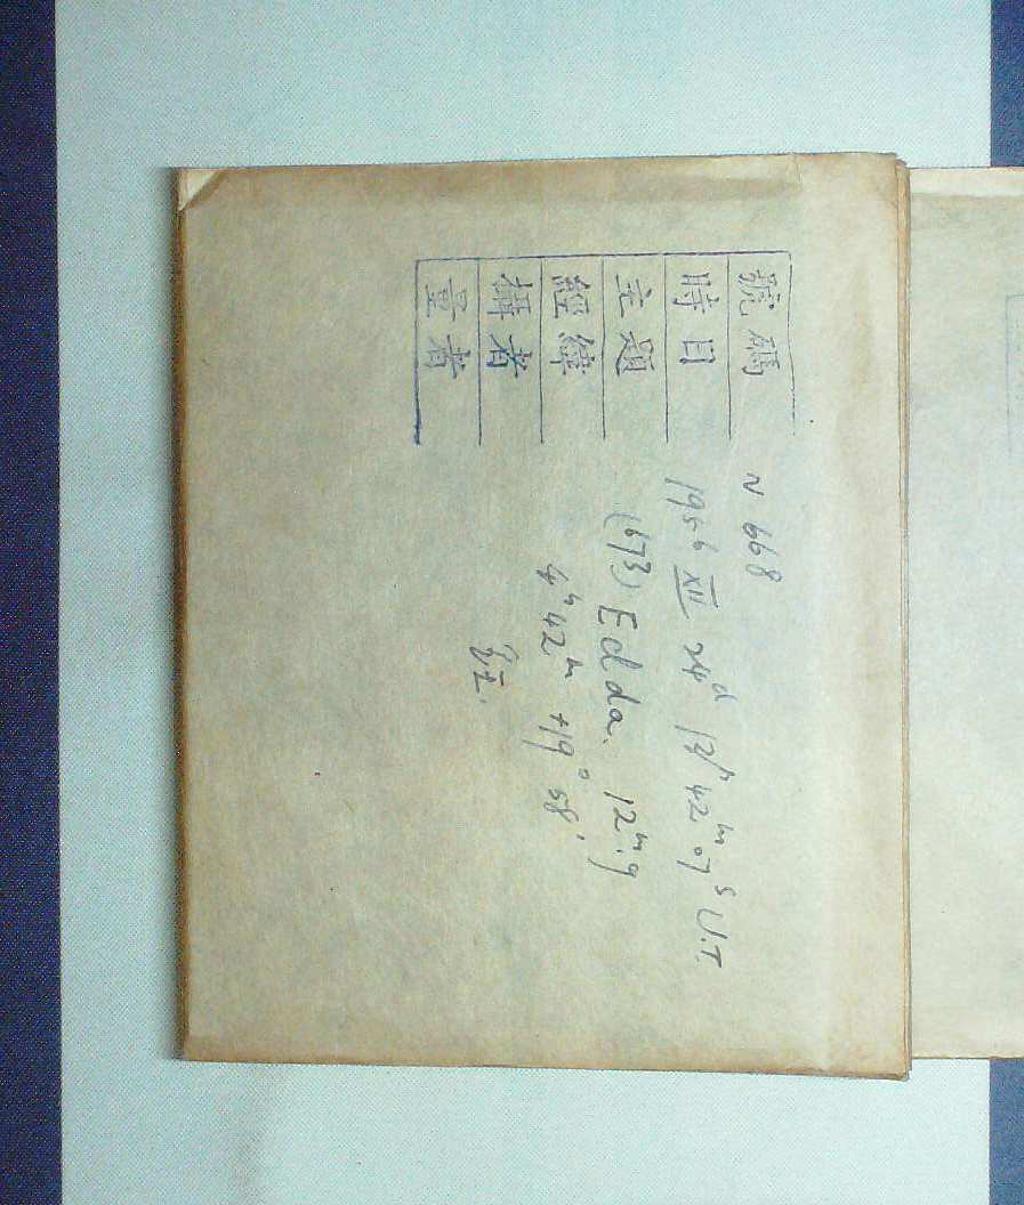 號碼 N 668
時日 1956 XII 24ᵈ 12ʰ 42ᵐ 07ˢ U.T.
主題 (673) Edda. 12ᵐ.9
經緯 4ʰ 42ᵐ +19° 58'
攝者
量者